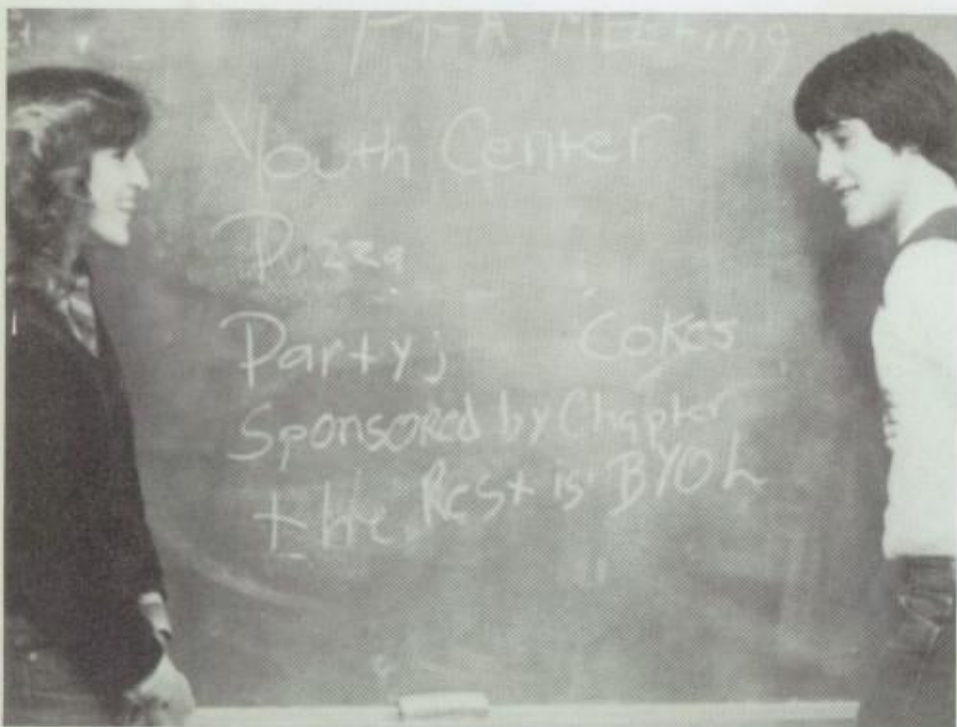 FFA MEEting
Youth Center
Pizza
Party; Cokes
Sponsored by Chapter
the Rest is BYOL